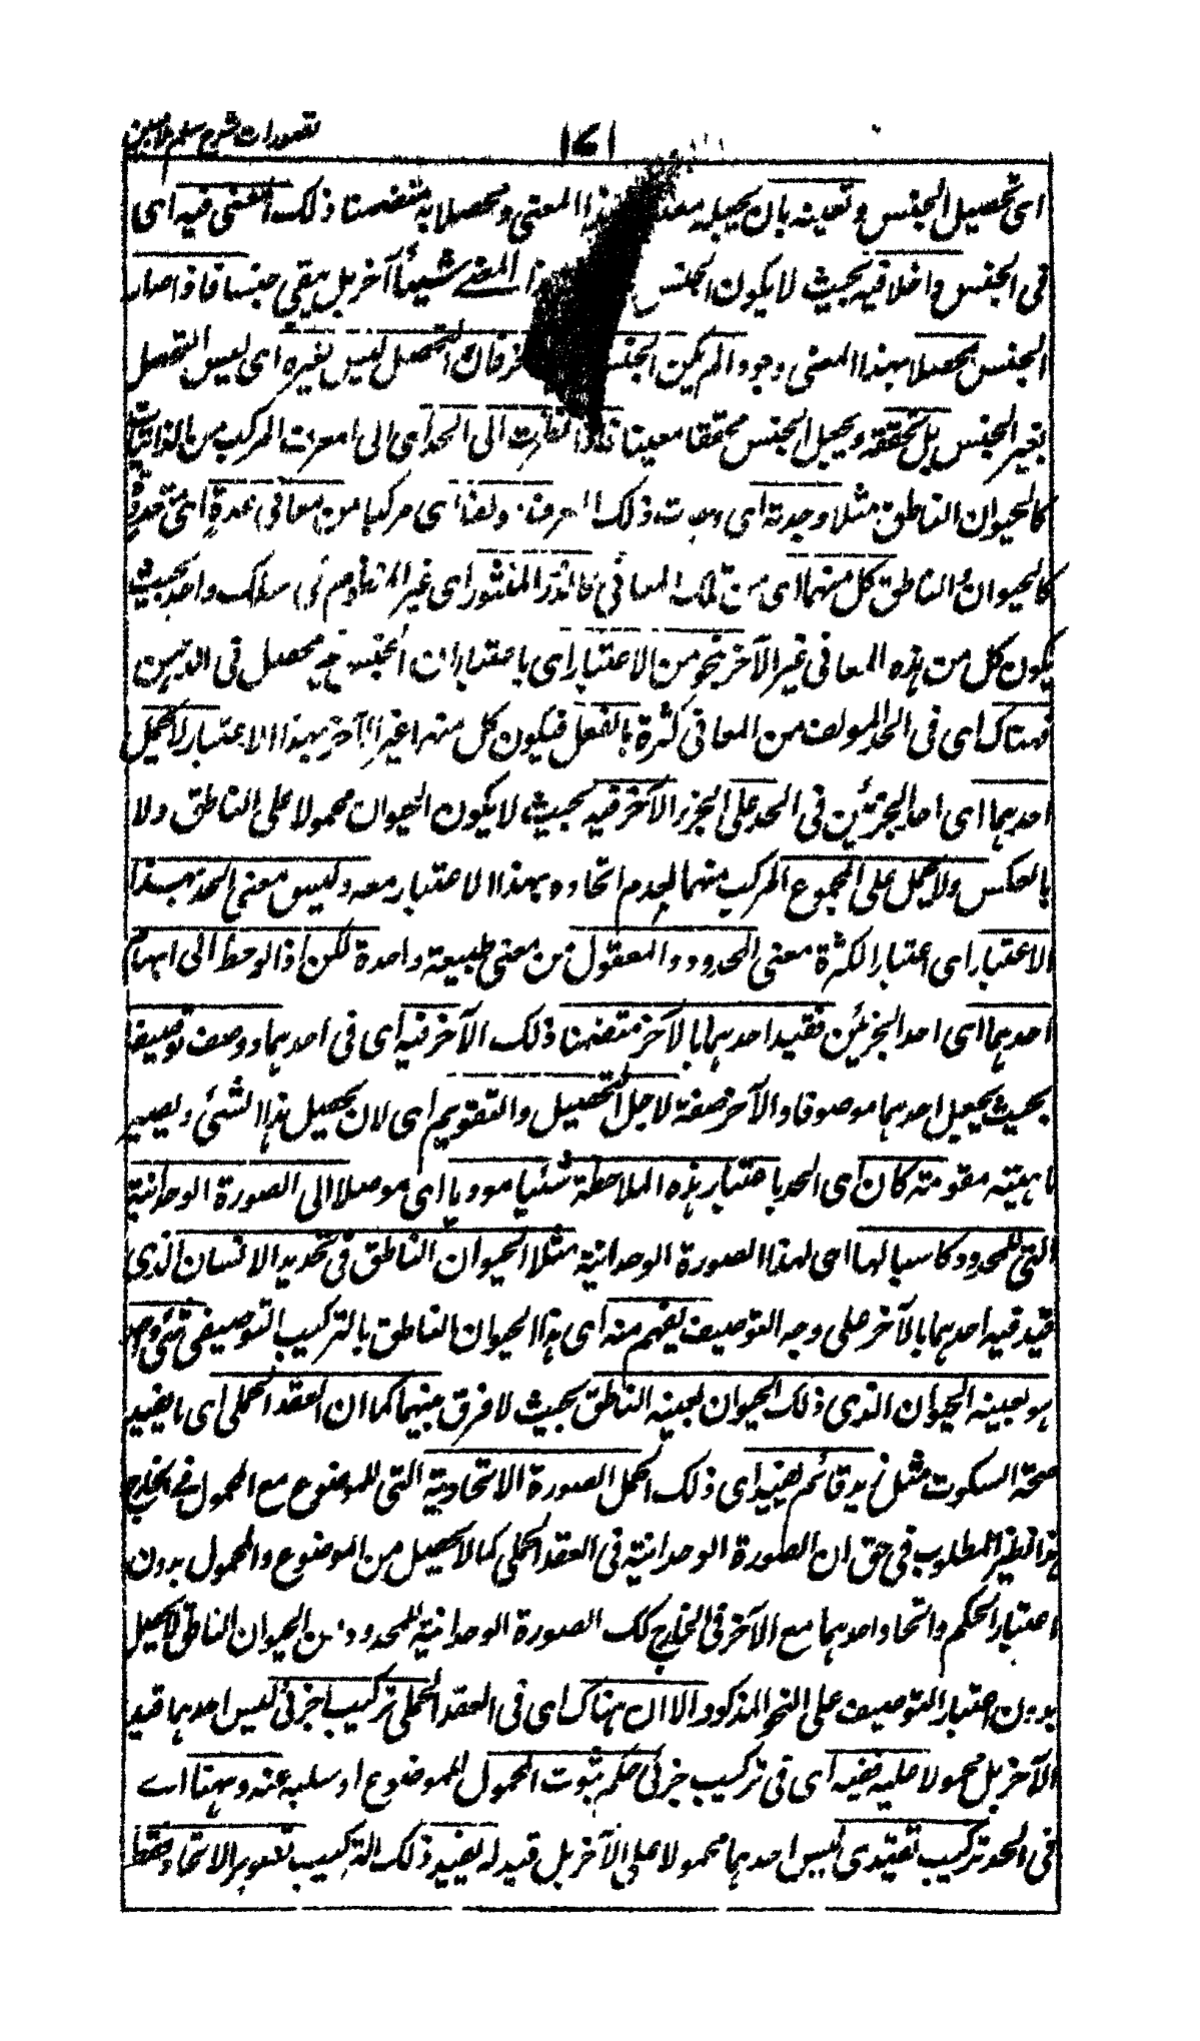 تصورات شرح سلم ملا مبین
۱۷۱
ای تحصیل الجنس وتعینه بان یجعله هذا المعنی ومحصلا به متضمنا ذلک المعنی فیه ای
فی الجنس داخلا فیه بحیث لا یکون الجنس المعنے شیئا آخر بل یبقی جنسا فاذا صار
الجنس محصلا بهذا المعنی وجودا لم یکن الجنس فان التحصل لیس یغیره ای لیس التحصل
یغیر الجنس بل تحققه ویجعل الجنس محققا معینا فاذا نظرت الی الحد ای الی المعرف المرکب من الذاتیات
کالحیوان الناطق مثلا وجدته ای وجدت ذلک المعرف مولفا ای مرکبا من معانی عدة ای متعددة
کالحیوان والناطق کل منهما ای من تلک المعانی کالدرر المنثور ای غیر المنظوم فی سلک واحد بحیث
یکون کل من هذه المعانی غیر الآخر بنحو من الاعتبار ای باعتبار ان الجنس غیر محصل فی الذهن
فهناک ای فی الحد المولف من المعانی کثرة بالفعل فیکون کل منها غیر الآخر بهذا الاعتبار لا یحمل
احدهما ای احد الجزئین فی الحد علی الجزء الآخر فیه بحیث لا یکون الحیوان محمولا علی الناطق ولا
بالعکس ولا یحمل علی المجموع المرکب منهما لعدم اتحاده بهذا الاعتبار معه ولیس معنی الحد بهذا
الاعتبار ای اعتبار الکثرة معنی المحدود والمعقول من معنی طبیعة واحدة لکن اذا لوحظ الی ابهام
احدهما ای احد الجزئین فقید احدهما بالآخر متضمنا ذلک الآخر فیه ای فی احدهما ووصف توصیفا
بحیث یجعل احدهما موصوفا والآخر صفة لاجل التحصیل والتقویم ای لان یحصل هذا الشئ ویصیر
ماهیته مقومته کان ای الحد باعتبار هذه الملاحظة شیئا مودیا ای موصلا الی الصورة الوحدانیة
التی للمحدود کاسبا لها ای لهذا الصورة الوحدانیة مثلا الحیوان الناطق فی تحدید الانسان الذی
قید فیه احدهما بالآخر علی وجه التوصیف یفهم منه ای هذا الحیوان الناطق بالترکیب التوصیفی شئ واحد
هو بعینه الحیوان الذی ذلک الحیوان بعینه الناطق بحیث لا فرق بینهما کما ان العقد الحملی ای ما یفید
صحة السکوت مثل زید قائم یفید ای ذلک الحمل الصورة الاتحادیة التی للموضوع مع المحمول فے الخارج
هذا نظیر المطلوب فی حق ان الصورة الوحدانیة فی العقد الحملی کما لا تحصل من الموضوع والمحمول بدون
اعتبار الحکم واتحاد احدهما مع الآخر فی الخارج کک الصورة الوحدانیة للمحدود من الحیوان الناطق لا تحصل
بدون اعتبار التوصیف علی النحو المذکور الا ان هناک ای فی العقد الحملی ترکیبا خبریا لیس احدهما قید
الآخر بل محمولا علیه ففیه ای فی ترکیب خبری حکم بثبوت المحمول للموضوع او سلبه عنه وههنا اے
فی الحد ترکیب تقییدی لیس احدهما محمولا علی الآخر بل قید له یفید ذلک الترکیب تصور الاتحاد فقط